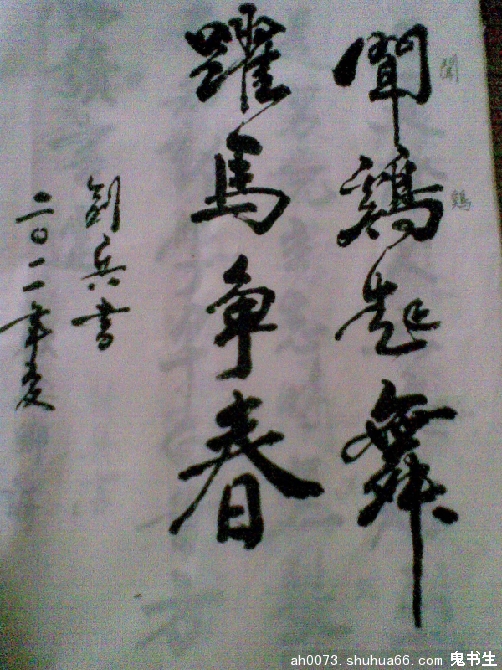 聞鷄起舞
躍馬争春
剑兵書
二〇一一年夏
聞
鷄
ah0073.shuhua66.com 鬼书生